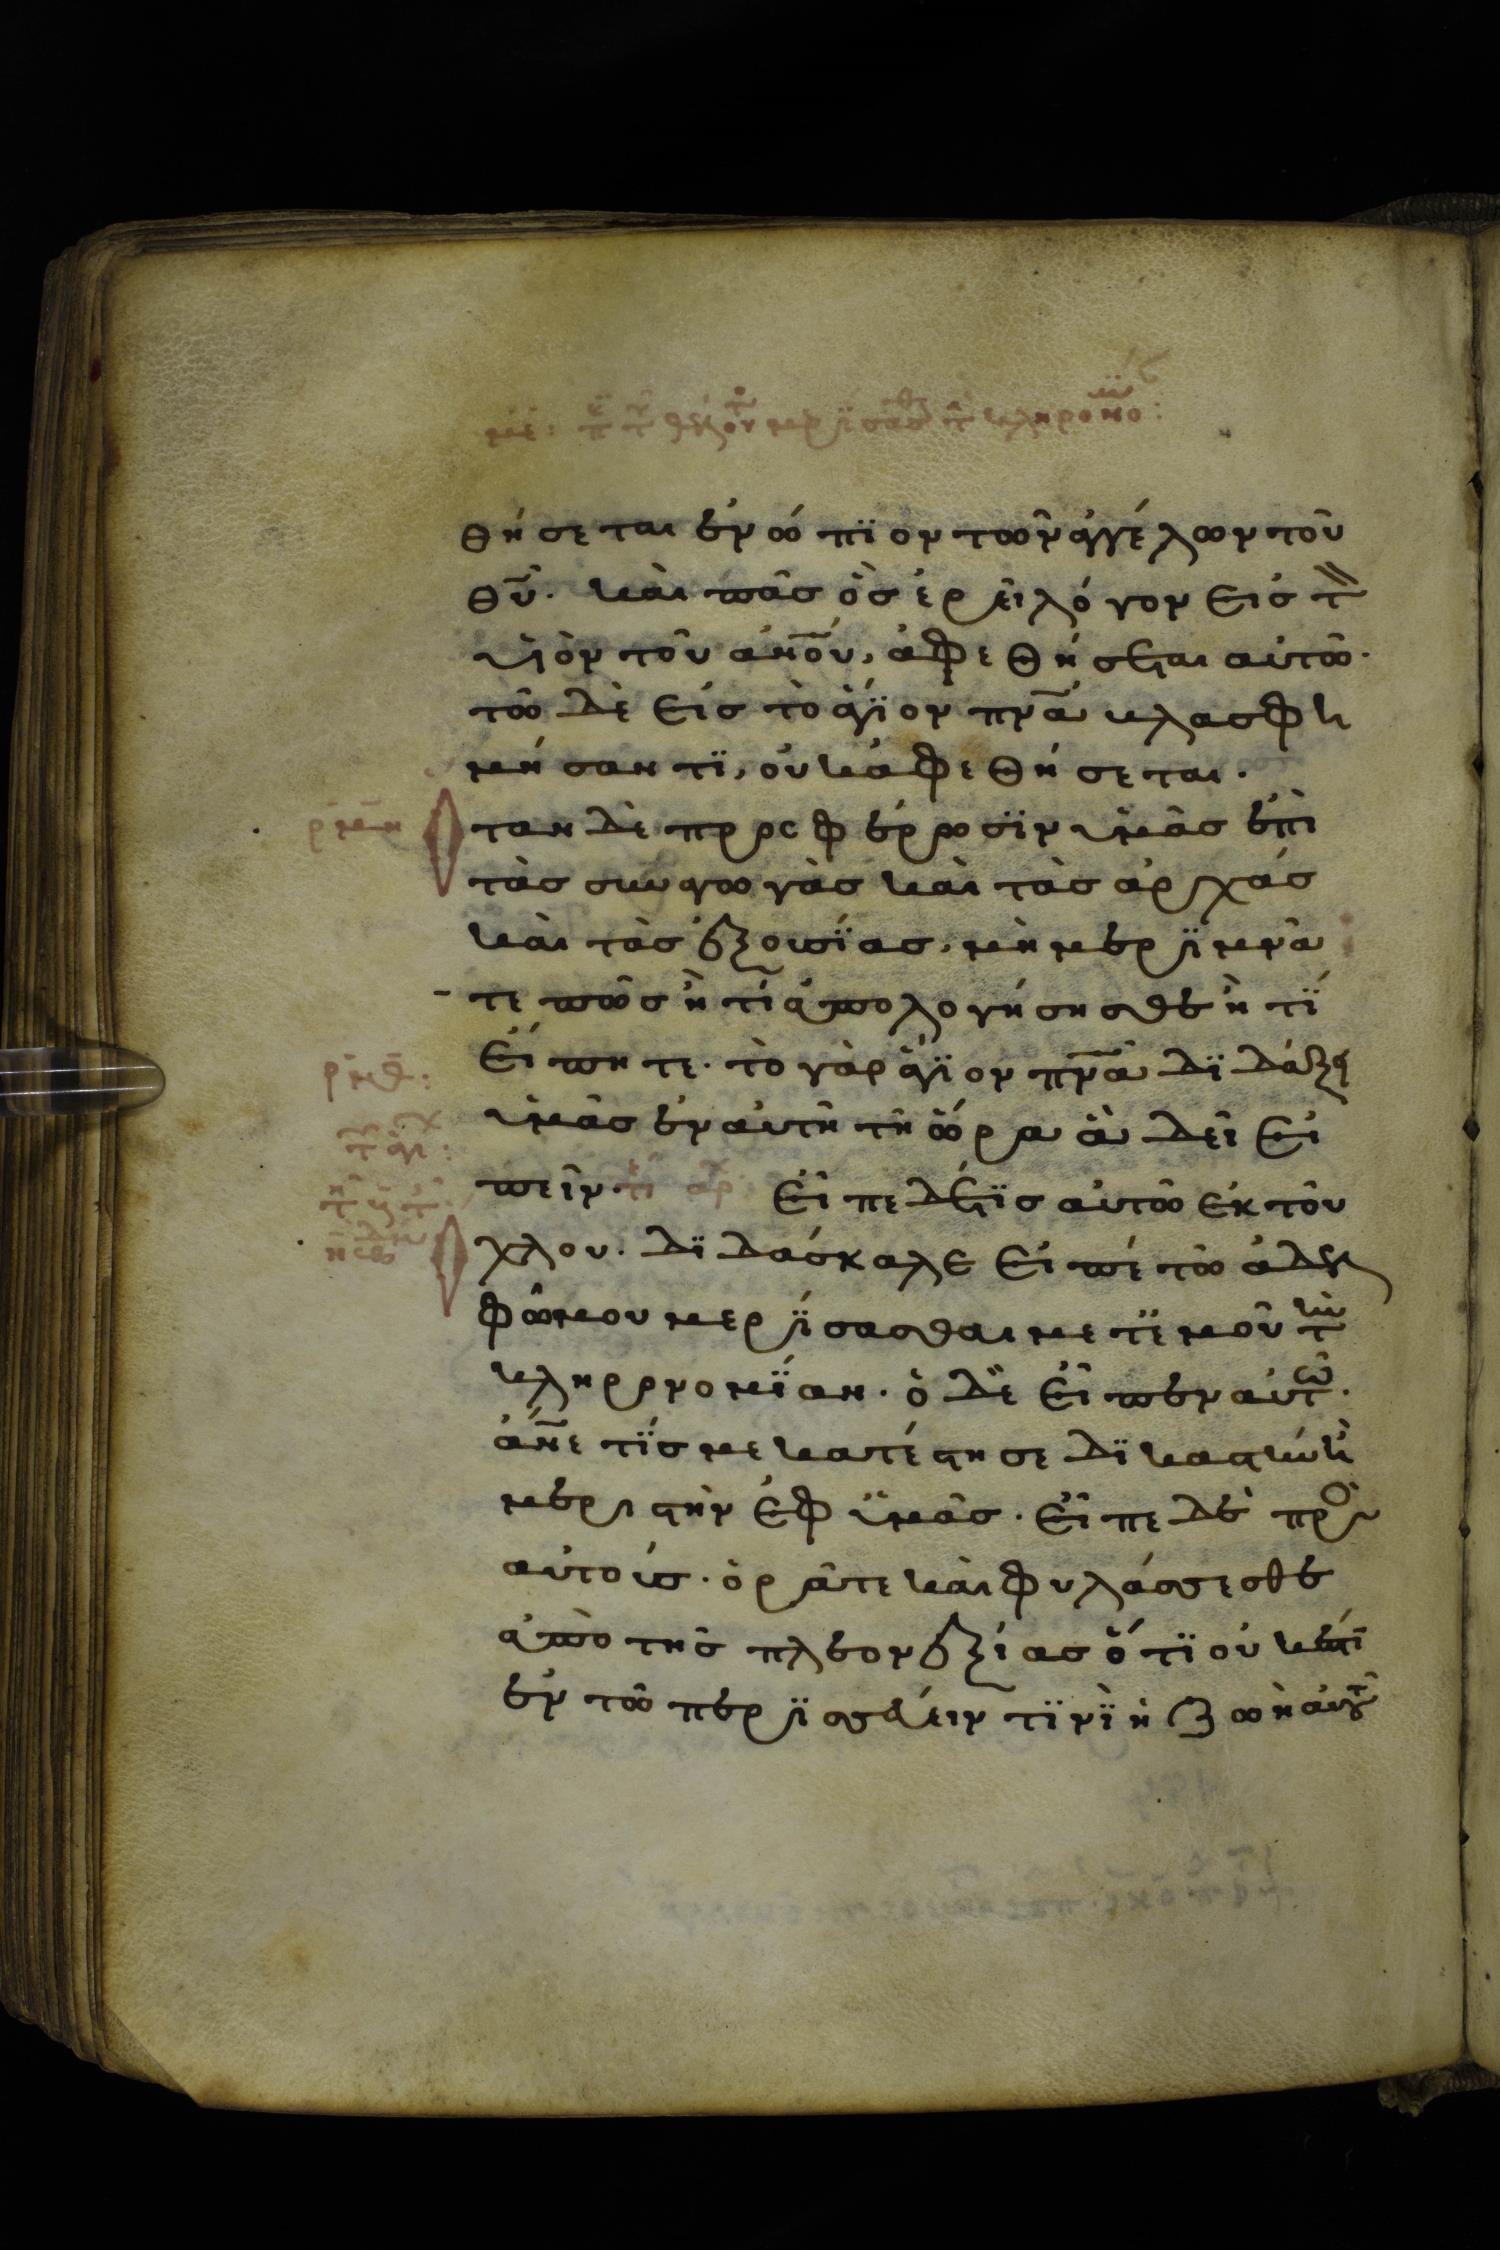 θήσεται ἐνώπϊον τῶν ἀγγέλων τοῦ
θ̅υ̅. καὶ πᾶς ὃς ἐρεῖ λόγον εἰς τὸν
υἱὸν τοῦ α̅ν̅ο̅υ̅, ἀφεθήσεται αὐτῶ.
τῶ δὲ εἰς τὸ ἅγϊον π̅ν̅α̅ βλασφη
μήσαντϊ, οὐκ ἀφεθήσεται.
ρ̅μ̅η̅ Ὅταν δὲ προσφέρωσϊν ὑμᾶς ἐπὶ
τὰς συναγωγὰς καὶ τὰς ἀρχάς
καὶ τὰς ἐξουσΐας, μὴ μερϊμνᾶ
τε πῶς ἢ τΐ ἀπολογήσησθε ἢ τΐ
εἴπητε. τὸ γὰρ ἅγϊον π̅ν̅α̅ δϊδάξει
ὑμᾶς ἐν αὐτῆ τῆ ὥρα ἃ δεῖ εἰ
πεῖν. τέ ἀρχ εἶπε δέ τϊς αὐτῶ ἐκ τοῦ
Ὄχλου. δϊδάσκαλε εἰπέ τῶ ἀδελ
φῶ μου μερΐσασθαι μετ ἐμοῦ τὴν
κληρονομΐαν. ὁ δὲ εἶπεν αὐτῶ.
α̅ν̅ε̅ τΐς με κατέστησε δϊκαστὴν ἢ
μεριστὴν ἐφ ὑμᾶς. εἶπε δὲ πρὸς
αὐτούς. ὁρᾶτε καὶ φυλάσσεσθε
ἀπὸ τῆς πλεονεξίας ὅτϊ οὐκ
ἐν τῶ περϊσσεύειν τϊνῒ ἡ ζωὴ αὐτοῦ